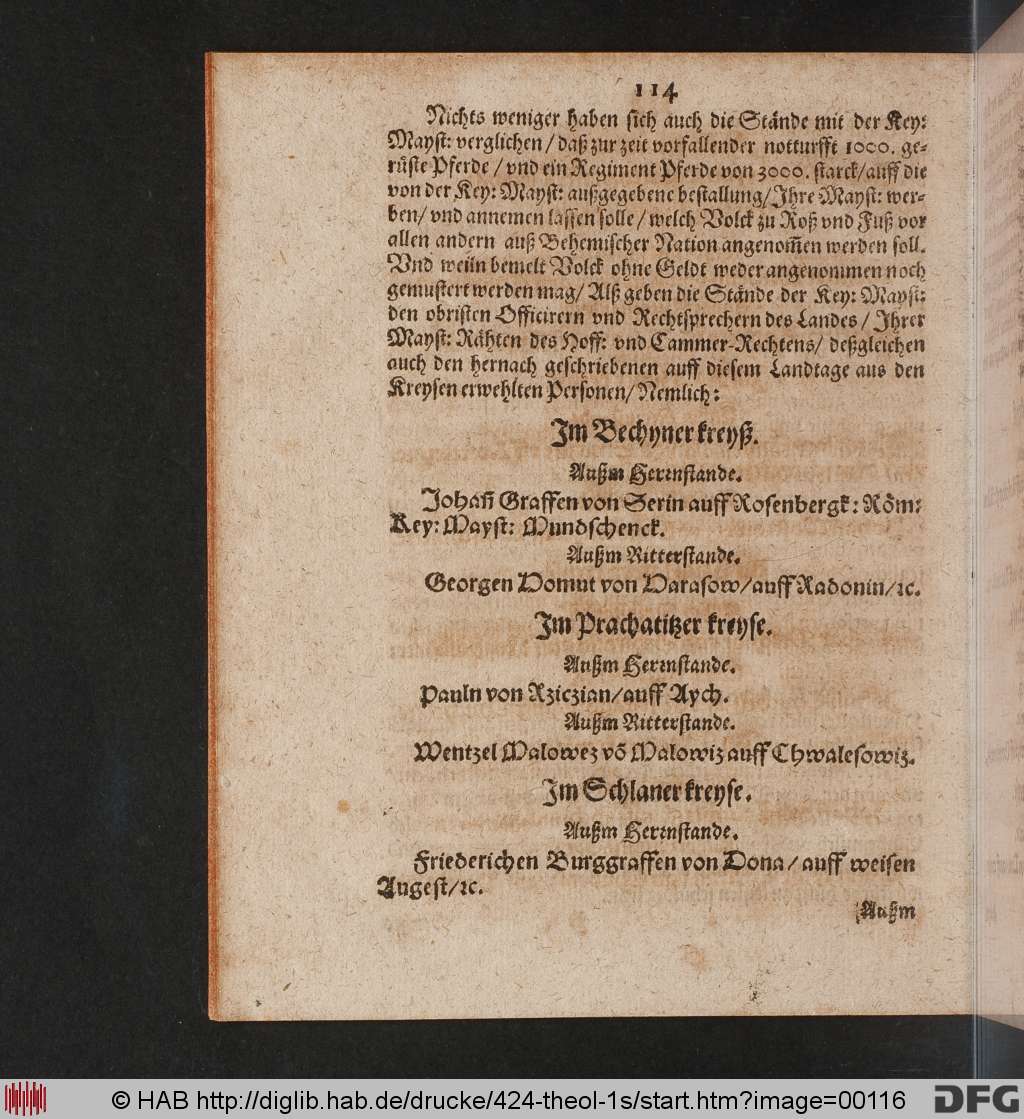 114
Nichts weniger haben sich auch die Stände mit der Key:
Mayst: verglichen / daß zur zeit vorfallender notturfft 1000. ge-
rüste Pferde / vnd ein Regiment Pferde von 3000. starck/auff die
von der Key: Mayst: außgegebene bestallung/Ihre Mayst: wer-
ben/ vnd annemen lassen solle / welch Volck zu Roß vnd Fuß vor
allen andern auß Behemischer Nation angenom̃en werden soll.
Vnd weiln bemelt Volck ohne Geldt weder angenommen noch
gemustert werden mag/ Alß geben die Stände der Key: Mayst:
den obristen Officirern vnd Rechtsprechern des Landes / Ihrer
Mayst: Rähten des Hoff: vnd Cammer-Rechtens/ deßgleichen
auch den hernach geschriebenen auff diesem Landtage aus den
Kreysen erwehlten Personen/ Nemlich:
Im Bechyner kreyß.
Außm Herrnstande.
Johañ Graffen von Serin auff Rosenbergk: Röm:
Key: Mayst: Mundschenck.
Außm Ritterstande.
Georgen Domut von Darasow/auff Radonin/ꝛc.
Im Prachatitzer kreyse.
Außm Herrnstande.
Pauln von Rziczian/auff Aych.
Außm Ritterstande.
Wentzel Malowez võ Malowiz auff Chwalesowiz.
Im Schlaner kreyse.
Außm Herrnstande.
Friederichen Burggraffen von Dona / auff weisen
Augest/ꝛc.
Außm
© HAB http://diglib.hab.de/drucke/424-theol-1s/start.htm?image=00116
DFG